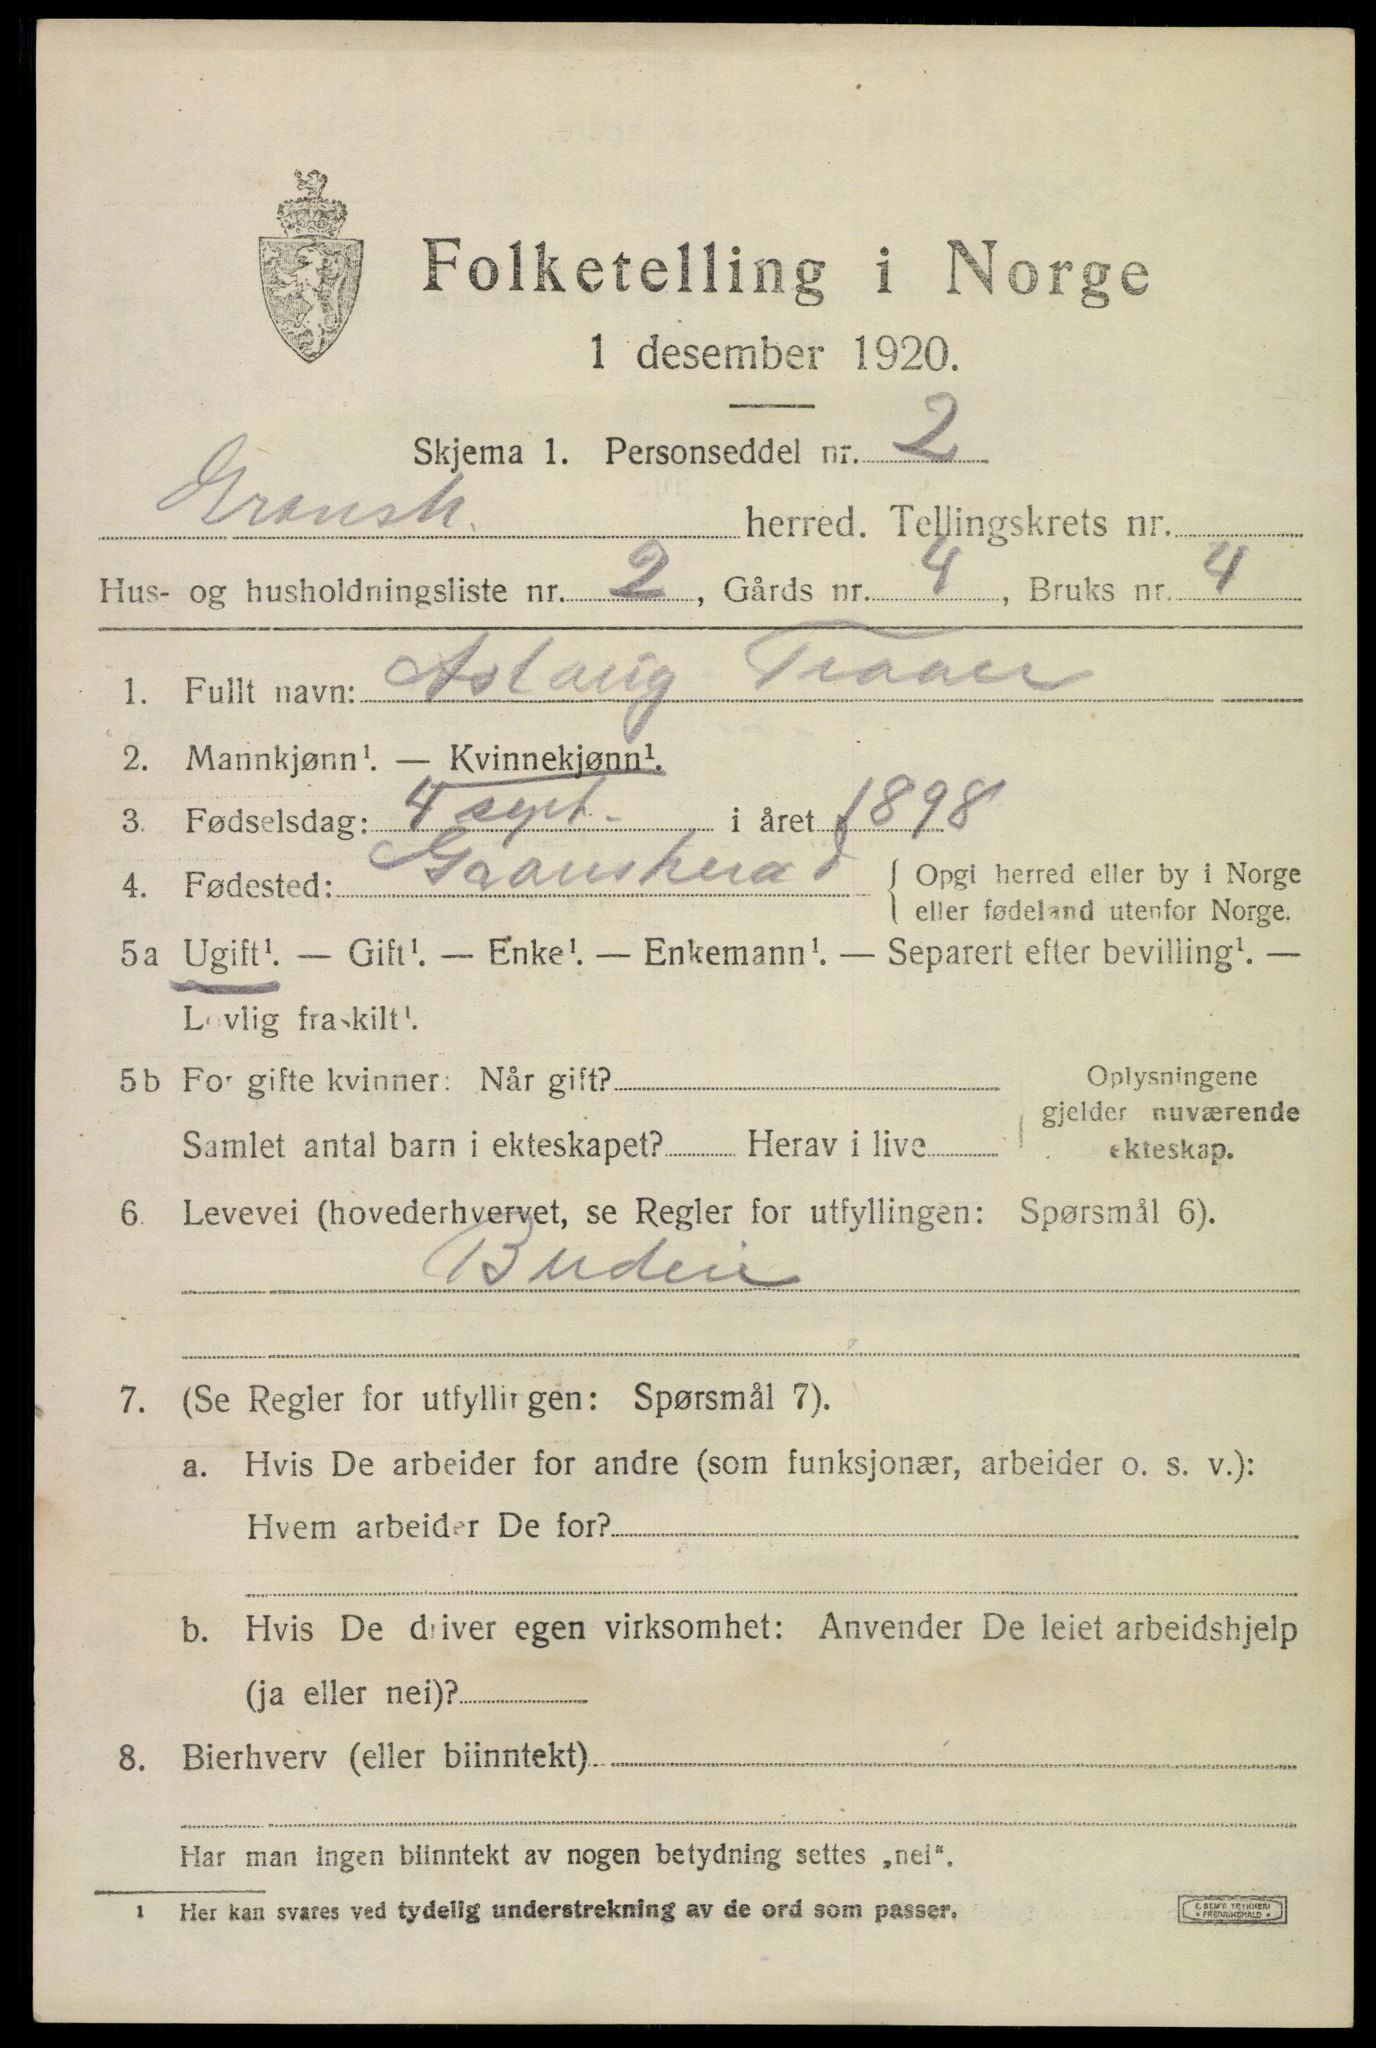 Folketelling i Norge
1 desember 1920.
Skjema 1. Personseddel nr. 2
Gransh. herred. Tellingskrets nr.
Hus- og husholdningsliste nr. 2, Gårds nr. 4, Bruks nr. 4
1. Fullt navn: Aslaug Traaen
2. Mannkjønn¹. — Kvinnekjønn¹.
3. Fødselsdag: 4 sept. i året 1898
4. Fødested: Gransherad { Opgi herred eller by i Norge
eller fødeland utenfor Norge.
5a Ugift¹. — Gift¹. — Enke¹. — Enkemann¹. — Separert efter bevilling¹. —
Lovlig fraskilt¹.
5b For gifte kvinner: Når gift?
Samlet antal barn i ekteskapet? Herav i live
Oplysningene
gjelder nuværende
ekteskap.
6. Levevei (hovederhvervet, se Regler for utfyllingen: Spørsmål 6).
Budeie
7. (Se Regler for utfyllingen: Spørsmål 7).
a. Hvis De arbeider for andre (som funksjonær, arbeider o. s. v.):
Hvem arbeider De for?
b. Hvis De driver egen virksomhet: Anvender De leiet arbeidshjelp
(ja eller nei)?
8. Bierhverv (eller biinntekt)
Har man ingen biinntekt av nogen betydning settes „nei“.
1 Her kan svares ved tydelig understrekning av de ord som passer.
E. SEM'S TRYKKERI
• FREDRIKSHALD •